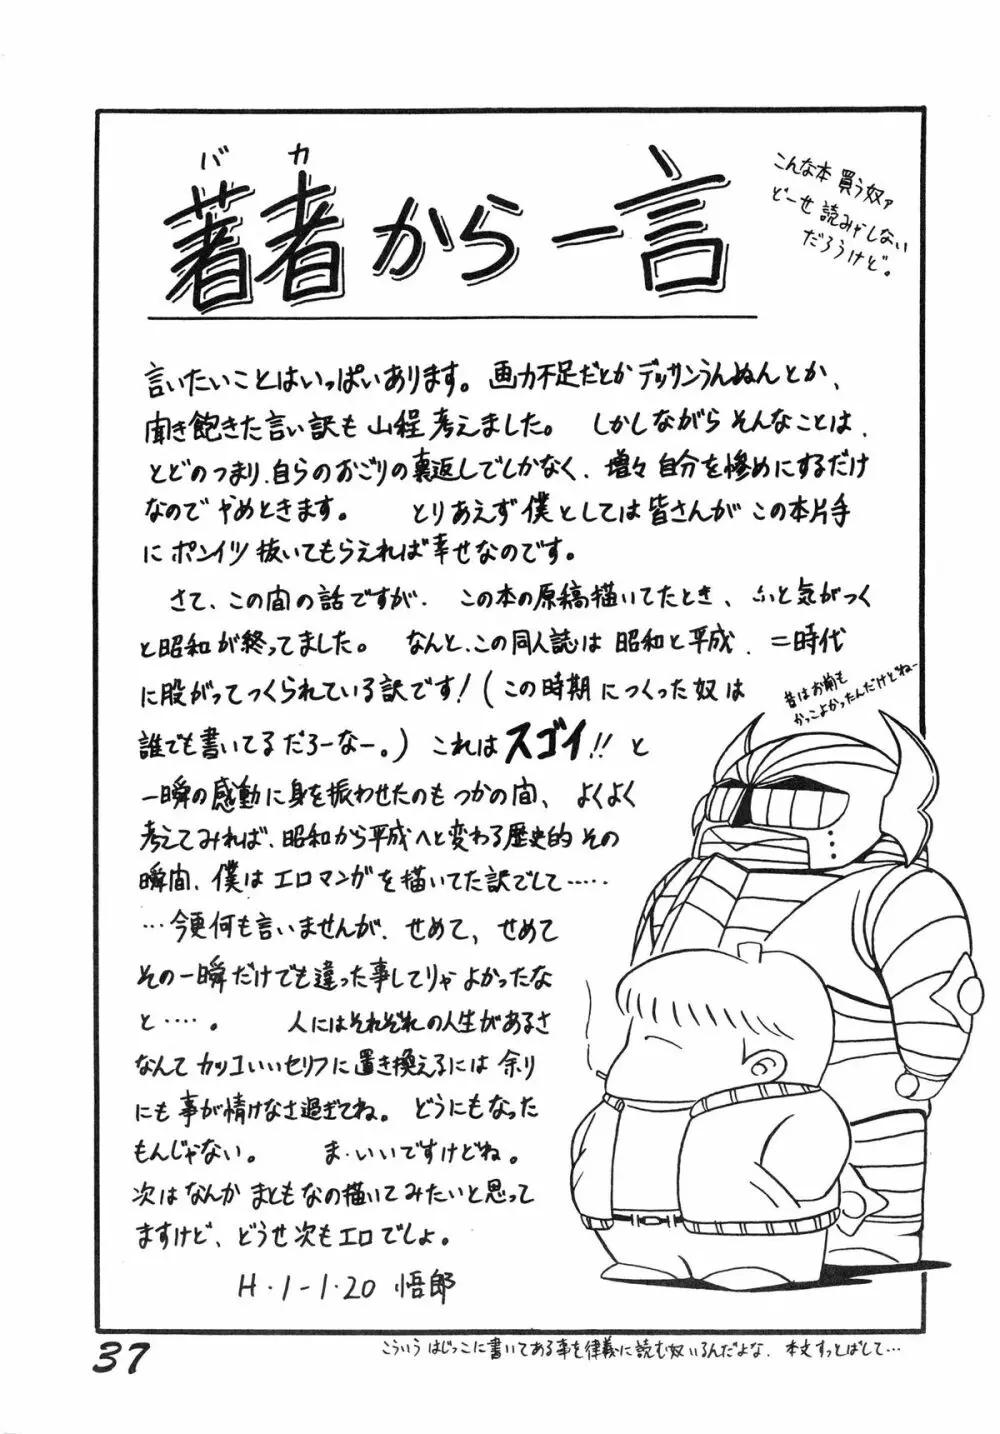 バカ
著者から一言
こんな本 買う奴ァ
どーせ 読みゃしない
だろうけど。
言いたいことはいっぱいあります。 画力不足だとかデッサンうんぬんとか、
聞き飽きた言い訳も山程考えました。 しかしながら そんなことは、
とどのつまり、自らのおごりの裏返しでしかなく、増々自分を惨めにするだけ
なので やめときます。 とりあえず僕としては皆さんが この本片手
にポンイツ 抜いてもらえれば幸せなのです。
さて、この間の話ですが、 この本の原稿描いてたとき、ふと気がつく
と昭和が終ってました。 なんと、この同人誌は 昭和と平成、二時代
に股がってつくられている訳です!(この時期につくった奴は
誰でも書いてるだろーなー。) これはスゴイ!! と
一瞬の感動に身を振わせたのもつかの間、よくよく
考えてみれば、昭和から平成へと変わる歴史的その
瞬間、僕はエロマンガを描いてた訳でして……
…今更何も言いませんが、せめて、せめて
その一瞬だけでも違った事してりゃよかったな
と……。 人にはそれぞれの人生があるさ
なんてカッコいいセリフに置き換えるには 余り
にも事が情けなさ過ぎてね。どうにもなった
もんじゃない。 ま、いいですけどね。
次はなんか まともなの描いてみたいと思って
ますけど、どうせ次もエロでしょ。
H・1-1・20 悟郎
昔はお前も
かっこよかったんだけどねー
37
こういう はじっこに書いてある事を律義に読む奴いるんだよな、本文すっとばして…